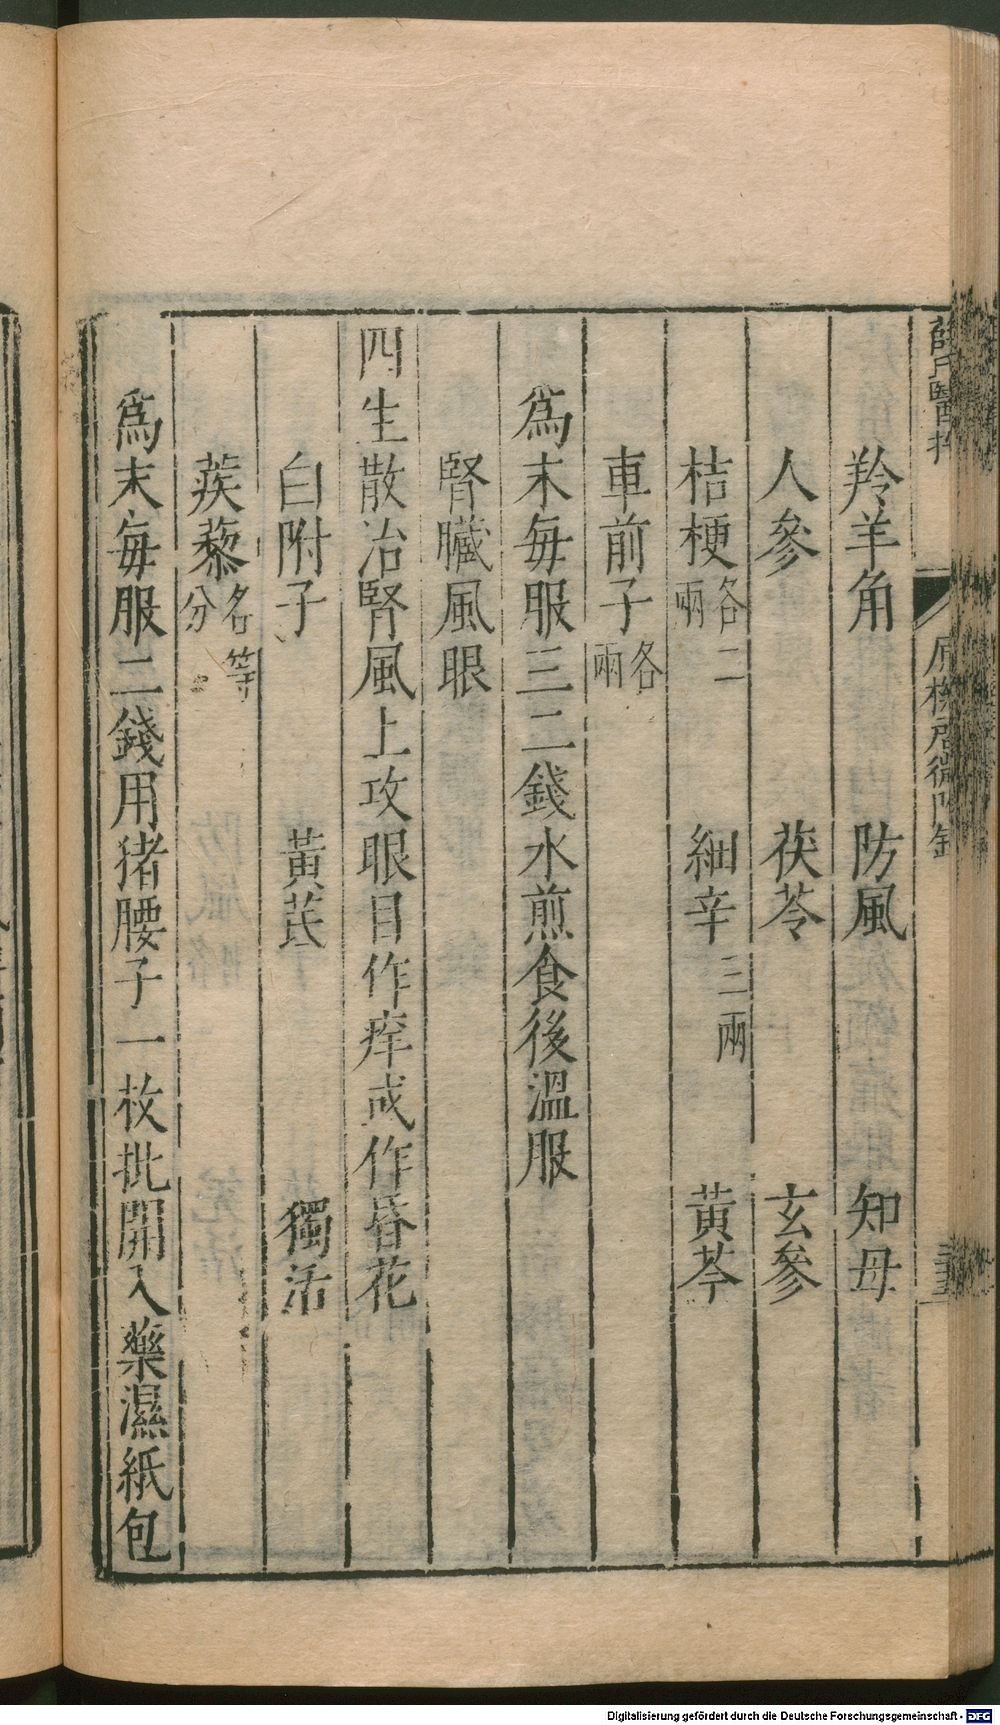 薛氏醫按
原機啓微附錄
羚羊角 防風 知母
人參 茯苓 玄參
桔梗各二兩 細辛三兩 黃芩
車前子各兩
爲末每服三二錢水煎食後溫服
腎臟風眼
四生散治腎風上攻眼目作痒或作昏花
白附子 黃芪 獨活
蒺藜各等分
爲末每服二錢用猪腰子一枚批開入藥濕紙包
Digitalisierung gefördert durch die Deutsche Forschungsgemeinschaft - DFG